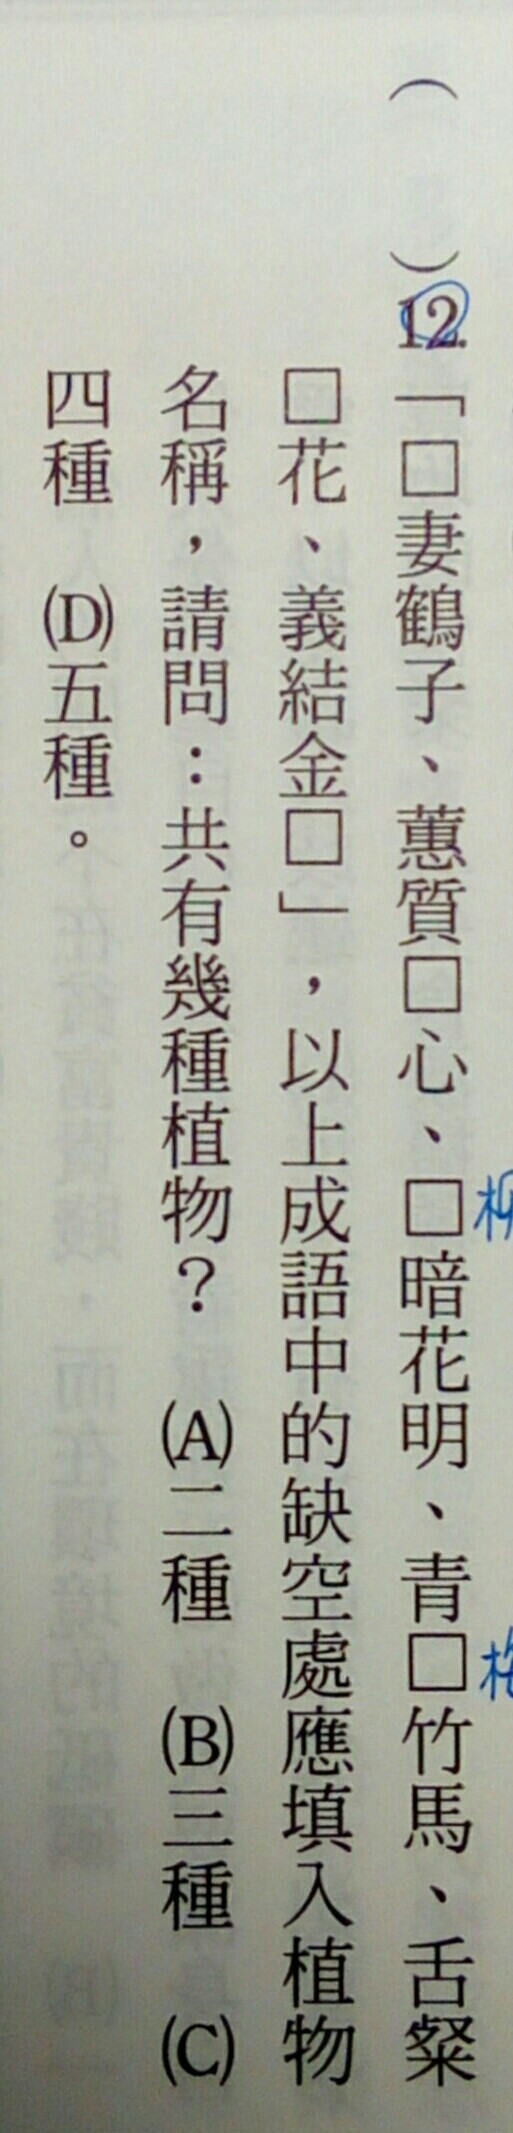 （　）12.「□妻鶴子、蕙質□心、□暗花明、青□竹馬、舌粲
□花、義結金□」，以上成語中的缺空處應填入植物
名稱，請問：共有幾種植物？　(A)二種　(B)三種　(C)
四種　(D)五種。